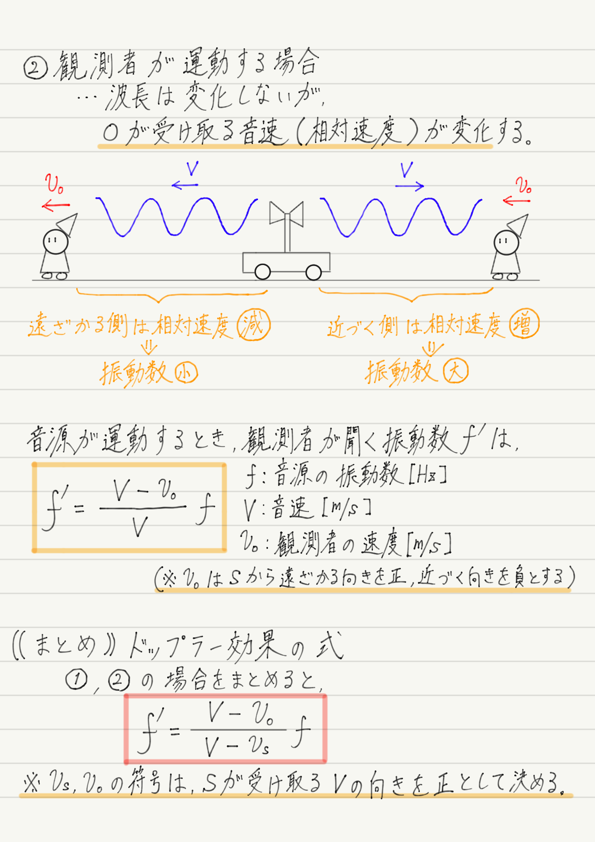 ② 観測者が運動する場合
… 波長は変化しないが、
Oが受け取る音速(相対速度)が変化する。
V V
v₀ v₀
遠ざかる側は相対速度 減 近づく側は相対速度 増
⇓ ⇓
振動数 小 振動数 大
音源が運動するとき、観測者が聞く振動数 f' は、
f' = (V - v₀)/V f
f : 音源の振動数 [Hz]
V : 音速 [m/s]
v₀ : 観測者の速度 [m/s]
(※ v₀ はSから遠ざかる向きを正、近づく向きを負とする)
《まとめ》ドップラー効果の式
①、②の場合をまとめると、
f' = (V - v₀)/(V - vₛ) f
※ vₛ, v₀ の符号は、Sが受け取るVの向きを正として決める。